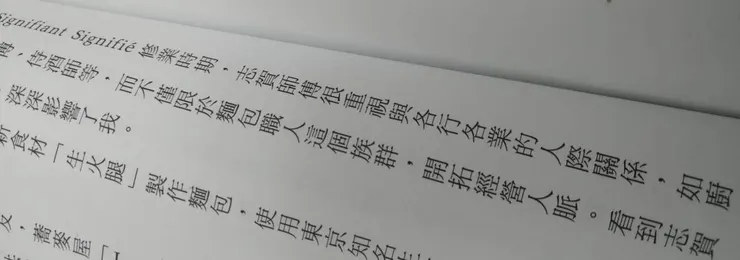 Signifiant Signifié 修業時期，志賀師傅很重視與各行各業的人際關係，如廚
傅，侍酒師等，而不僅限於麵包職人這個族群，開拓經營人脈。看到志賀
深深影響了我。
新食材「生火腿」製作麵包，使用東京知名
友，蕎麥屋「